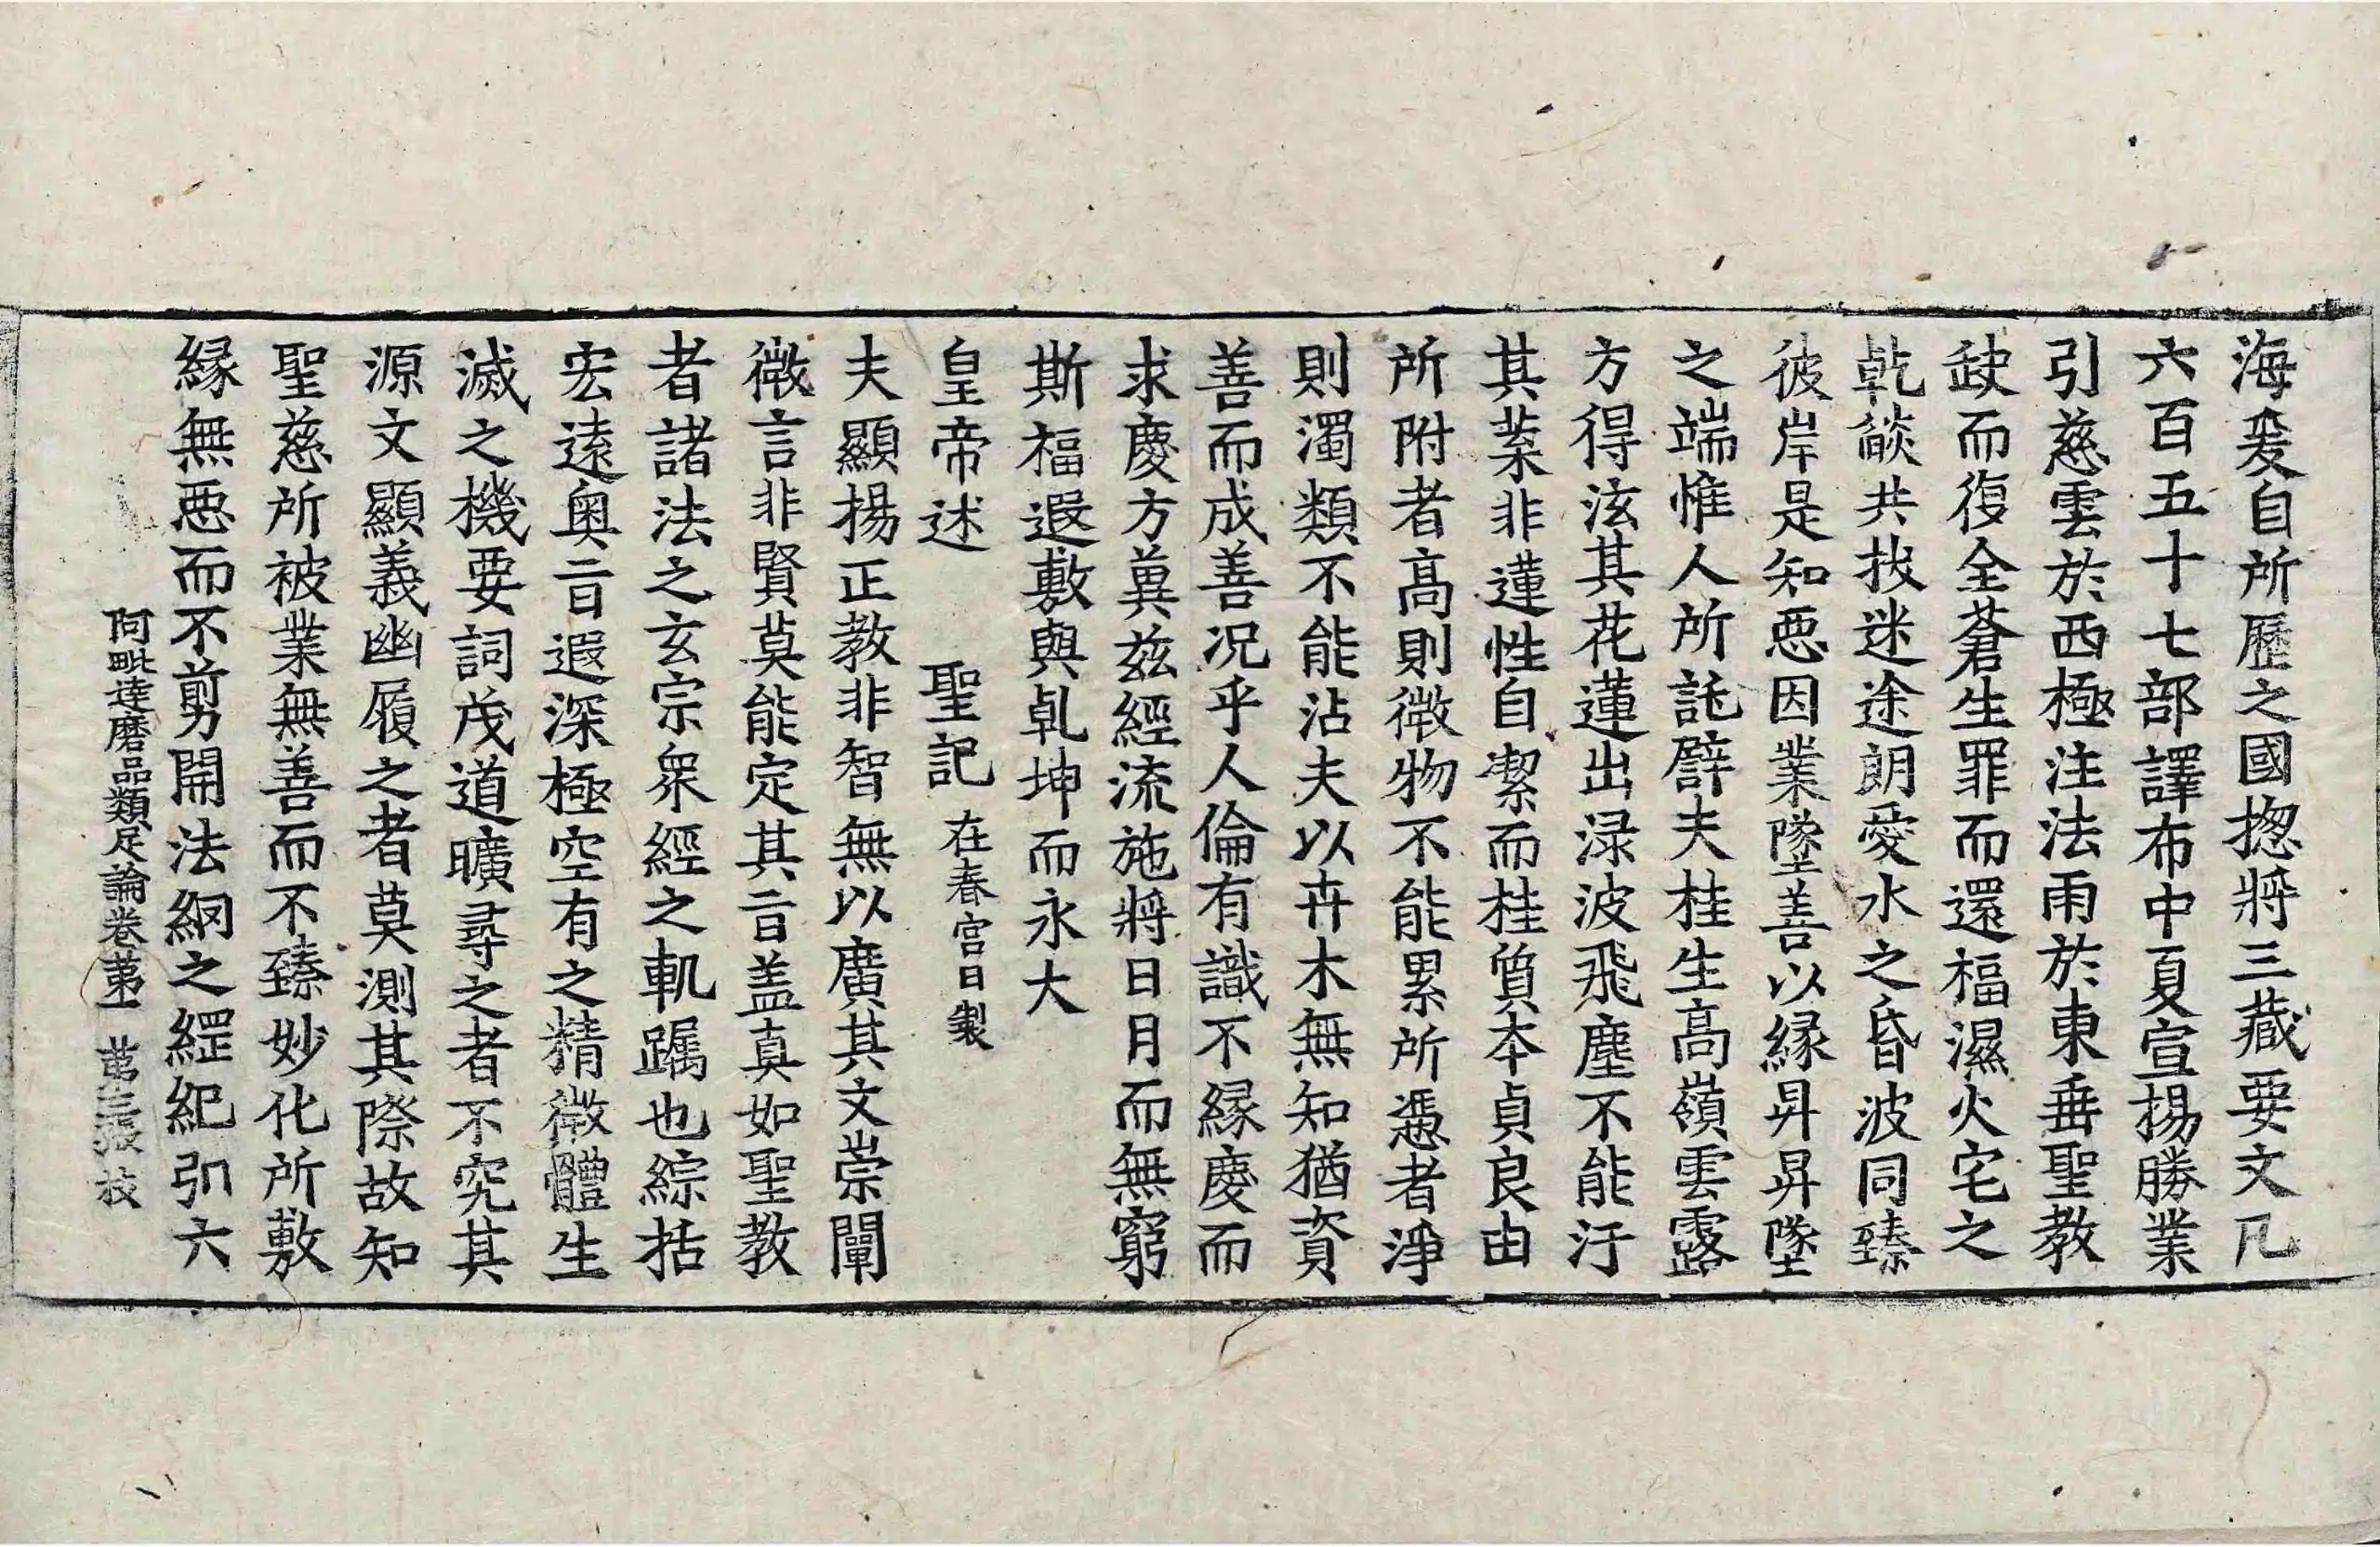 海爰自所歷之國揔將三藏要文凡
六百五十七部譯布中夏宣揚勝業
引慈雲於西極注法雨於東垂聖教
缺而復全蒼生罪而還福濕火宅之
乹燄共拔迷途朗愛水之昏波同臻
彼岸是知惡因業墜善以緣昇昇墜
之端惟人所託譬夫桂生高嶺雲露
方得泫其花蓮出渌波飛塵不能汙
其葉非蓮性自潔而桂質本貞良由
所附者高則微物不能累所憑者淨
則濁類不能沾夫以卉木無知猶資
善而成善況乎人倫有識不緣慶而
求慶方兾兹經流施將日月而無窮
斯福遐敷與乹坤而永大
皇帝述　聖記 在春宫日製
夫顯揚正教非智無以廣其文崇闡
微言非賢莫能定其旨盖真如聖教
者諸法之玄宗衆經之軌躅也綜括
宏遠奧旨遐深極空有之精微體生
滅之機要詞茂道曠尋之者不究其
源文顯義幽履之者莫測其際故知
聖慈所被業無善而不臻妙化所敷
緣無惡而不剪開法網之綱紀引六
阿毗達磨品類足論卷苐一 苐三張 技